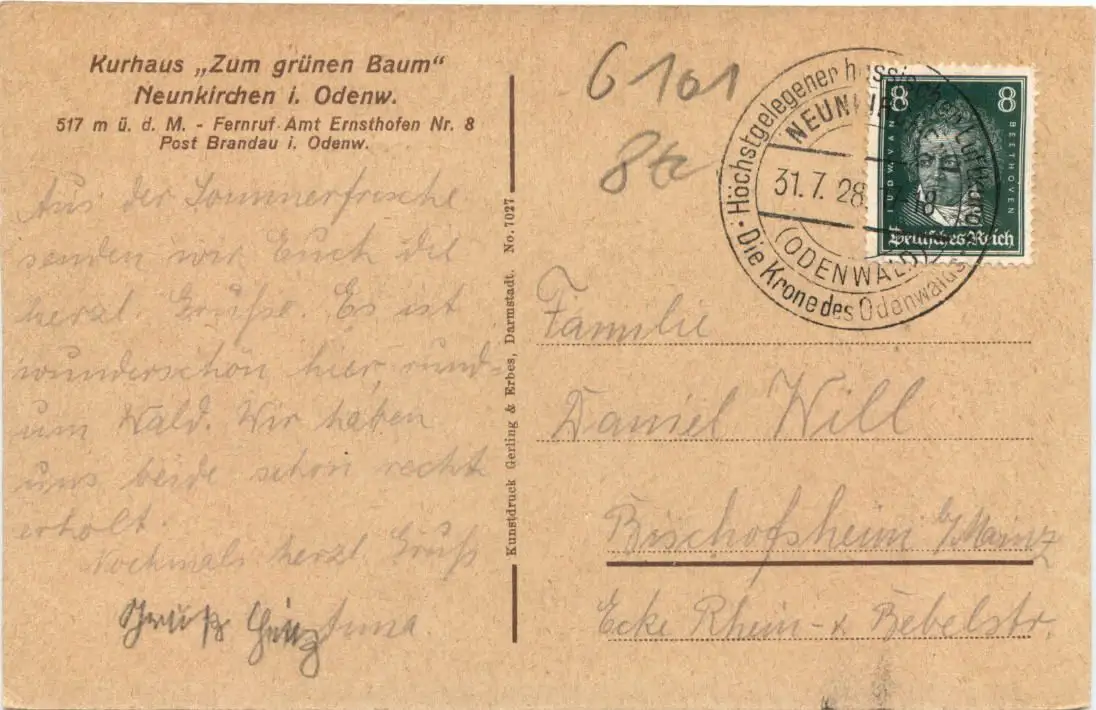 Kurhaus „Zum grünen Baum“
Neunkirchen i. Odenw.
517 m ü. d. M. - Fernruf Amt Ernsthofen Nr. 8
Post Brandau i. Odenw.
Aus der Sommerfrische
senden wir Euch die
herzl Grüße. Es ist
wunderschön hier, rund-
um Wald. Wir haben
uns beide schon recht
erholt.
Nochmals herzl Gruß
Gruß Heinz
Kunstdruck Gerling & Erbes, Darmstadt. No. 7027
6101
8
Höchstgelegener hessischer Luftkurort
NEUNKIRCHEN
31.7.28.
(ODENWALD)
Die Krone des Odenwalds
8 8
LUDW. VAN BEETHOVEN
Deutsches Reich
Familie
Daniel Will
Bischofsheim b/Mainz
Ecke Rhein- & Bebelstr.